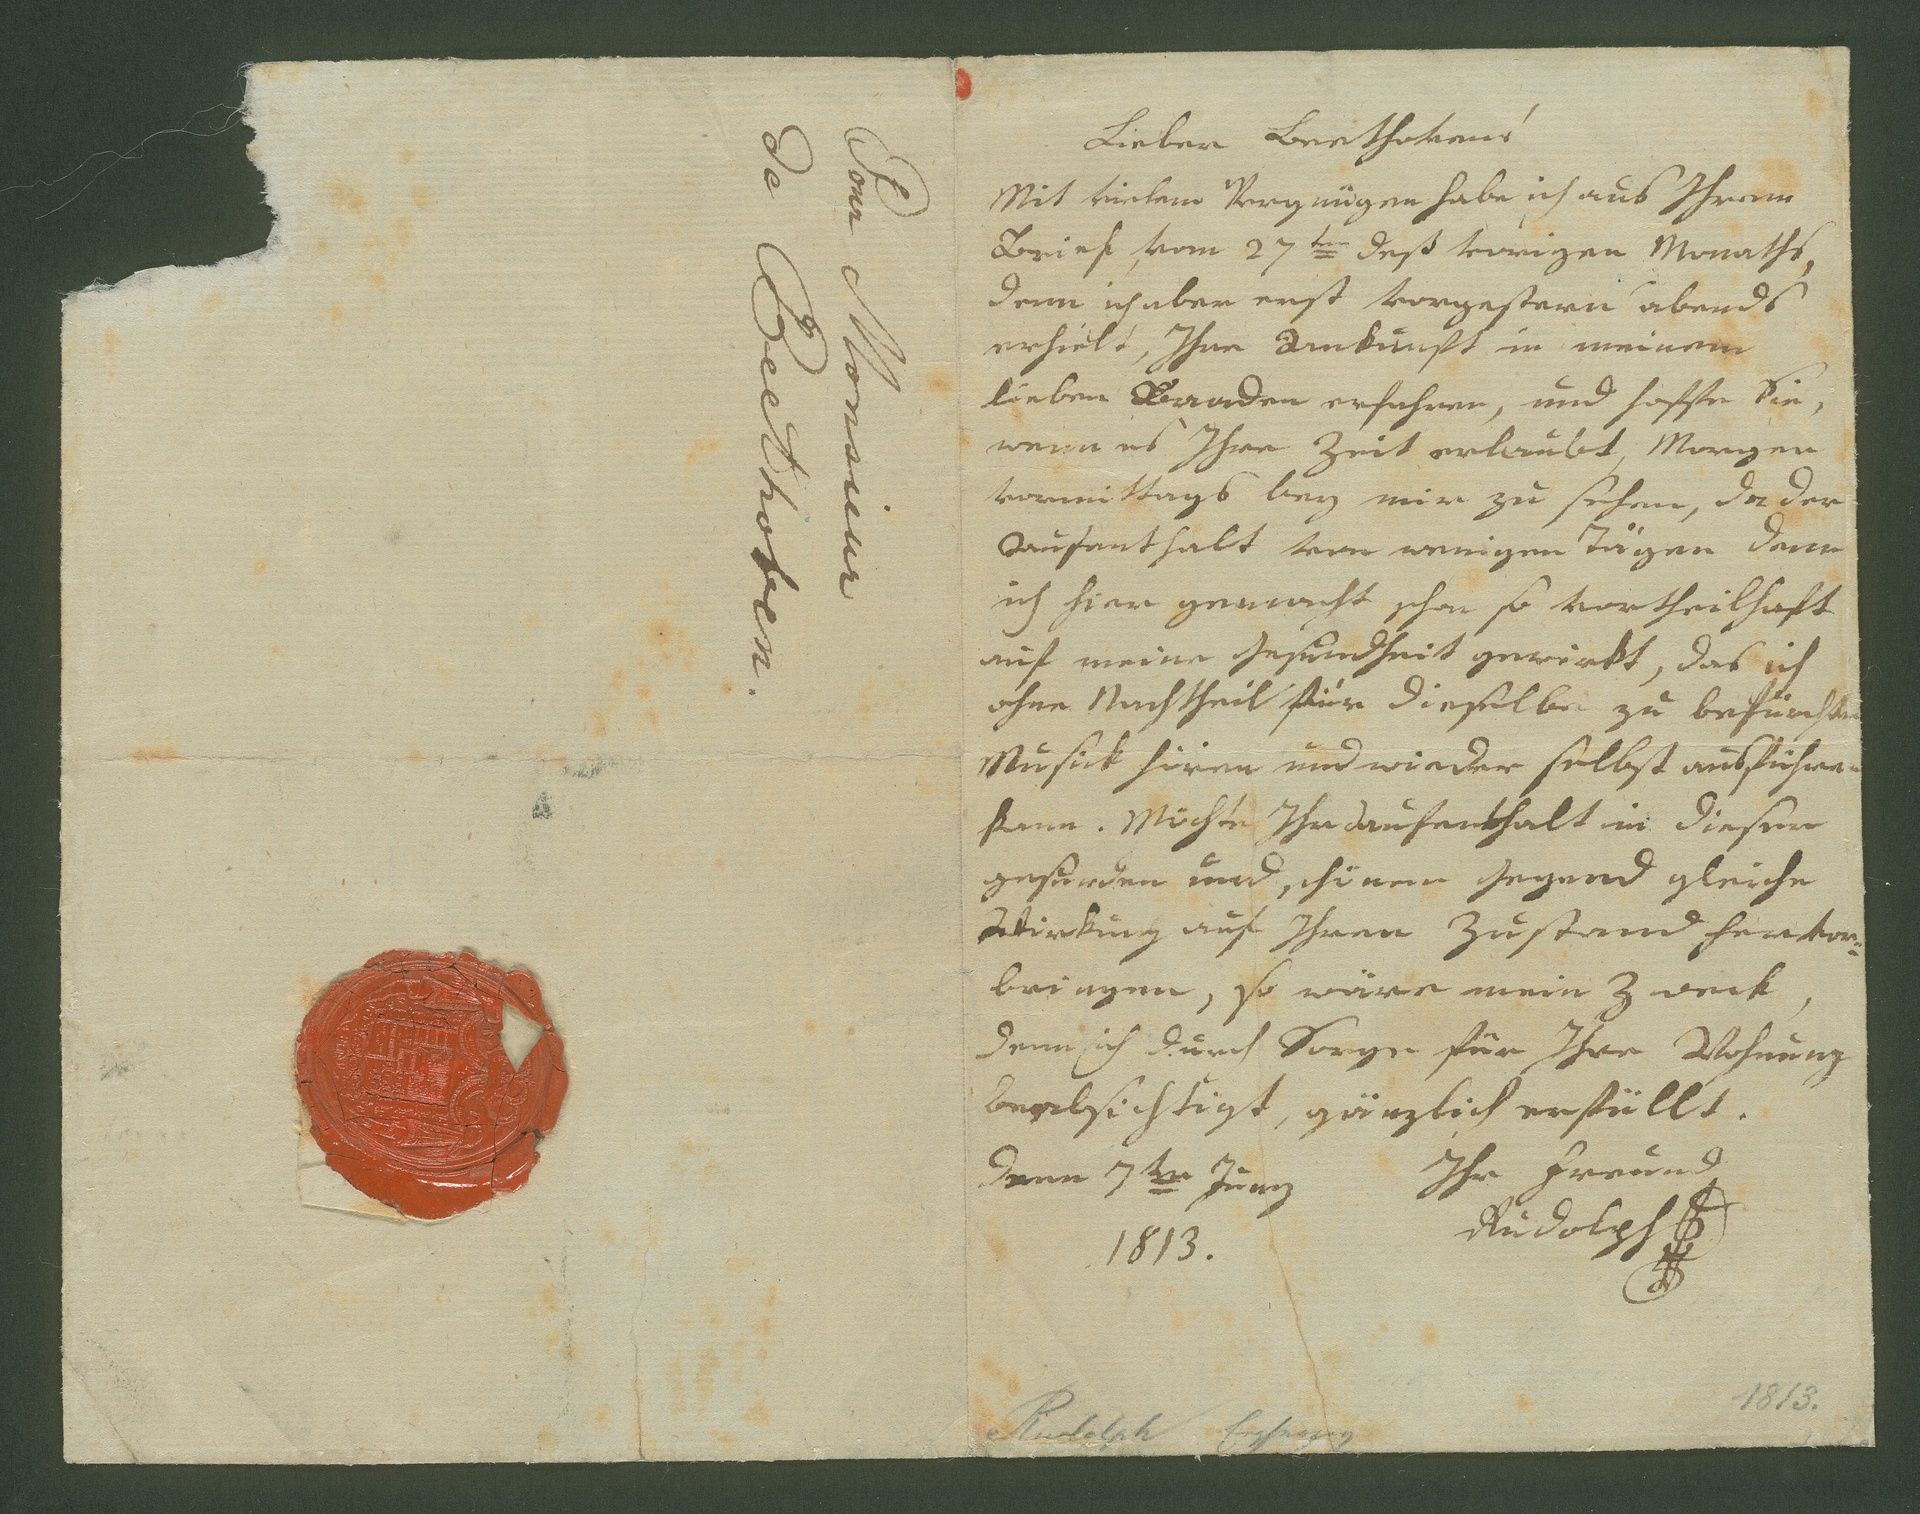 Pour Monsieur
de Beethoven.
Lieber Beethoven!
Mit vielem Vergnügen habe ich aus Ihrem
Brief vom 27ten deß vorigen Monaths,
denn ich aber erst vorgestern abends
erhielt, Ihre Ankunft in meinem
lieben Baaden erfahren, und hoffe Sie,
wenn es Ihre Zeit erlaubt, Morgen
vormittags bey mir zu sehen, da der
Aufenthalt von wenigen Tägen denn
ich hier gemacht schon so vortheilhaft
auf meine Gesundheit gewirkt, das ich
ohne Nachtheil für dieselbe zu befürchten
Musick hören und wieder selbst ausführen
kann. Möchte Ihr Aufenthalt in dieser
gesunden und schönen Gegend gleiche
Wirkung auf Ihren Zustand hervor=
bringen, so wäre mein Zweck,
denn ich durch Sorge für Ihre Wohnung
beabsichtigt, gänzlich erfüllt.
Denn 7ten Juny Ihr Freund
1813. Rudolph
1813.
Rudolph Erzherzog